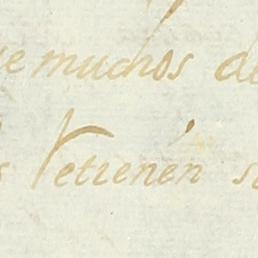 ue muchós de
s retienén s